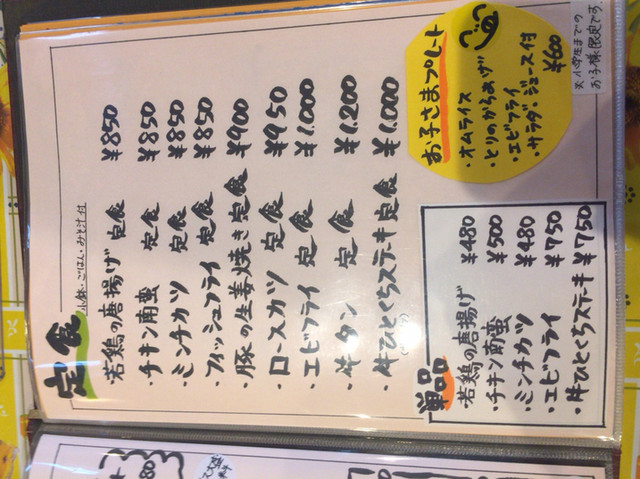 定食
小鉢・ごはん・みそ汁付
・若鶏の唐揚げ定食 ¥850
・チキン南蛮 定食 ¥850
・ミンチカツ 定食 ¥850
・フィッシュフライ 定食 ¥850
・豚の生姜焼き定食 ¥900
・ロースカツ 定食 ¥950
・エビフライ 定食 ¥1,000
・牛タン 定食 ¥1,200
・牛ひとくちステーキ定食 ¥1,000
お子さまプレート
・オムライス
・とりのからあげ
・エビフライ
・サラダ・ジュース付
¥600
※小学生までの
お子様限定です
単品
・若鶏の唐揚げ ¥480
・チキン南蛮 ¥500
・ミンチカツ ¥480
・エビフライ ¥750
・牛ひとくちステーキ ¥750